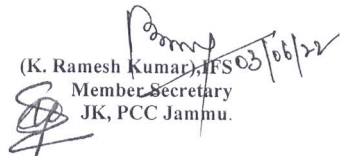 03/06/22
(K. Ramesh Kumar),IFS
Member Secretary
JK, PCC Jammu.